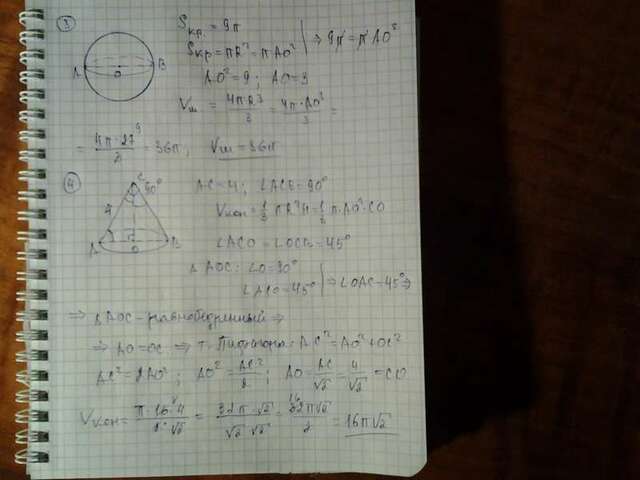 ③
Sкр. = 9π
Sкр = πR² = πAO² | ⇒ 9π = πAO²
AO² = 9 ; AO = 3
A O B
Vш = 4πR³/3 = 4π·AO³/3 =
= 4π·27⁹/3 = 36π ; Vш = 36π
④
C 90° 4 A O B
AC = 4 ; ∠ACB = 90°
Vкон = 1/3 πR²H = 1/3 π·AO²·CO
∠ACO = ∠OCB = 45°
△AOC: ∠O = 90°
∠ACO = 45° | ⇒ ∠OAC = 45° ⇒
⇒ △AOC - равнобедренный ⇒
⇒ AO = OC ⇒ т. Пифагора: AC² = AO² + OC²
AC² = 2AO² ; AO² = AC²/2 ; AO = AC/√2 = 4/√2 = CO
Vкон = π·16·4/2·√2 = 32π·√2/√2·√2 = 32π√2/2 = 16π√2